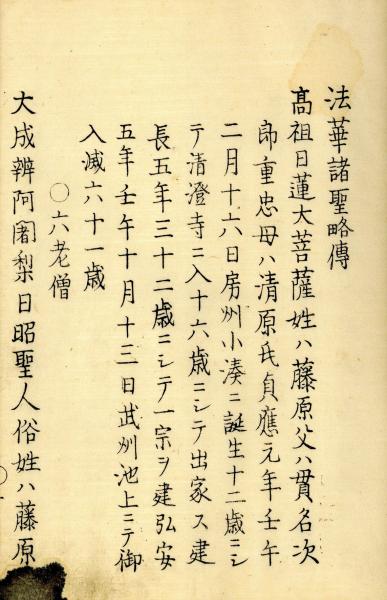 法華諸聖略傳
髙祖日蓮大菩薩姓ハ藤原父ハ貫名次
郎重忠母ハ清原氏貞應元年壬午
二月十六日房州小湊ニ誕生十二歳ニシ
テ清澄寺ニ入十六歳ニシテ出家ス建
長五年三十二歳ニシテ一宗ヲ建弘安
五年壬午十月十三日武州池上ニテ御
入滅六十一歳
○六老僧
大成辨阿闍梨日昭聖人俗姓ハ藤原